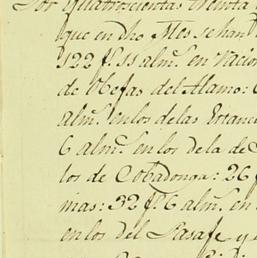 Por quatrocientas treinta
que en dho Mes se han
122 f.s 11 alm.s en Racio
de Obejas del Alamo:
alm.s en los de las Estanc
6 alm.s en los de la de
los de Cobadonga: 26 f
inas: 32 f.s 6 alm.s en
en los del Pasaje y